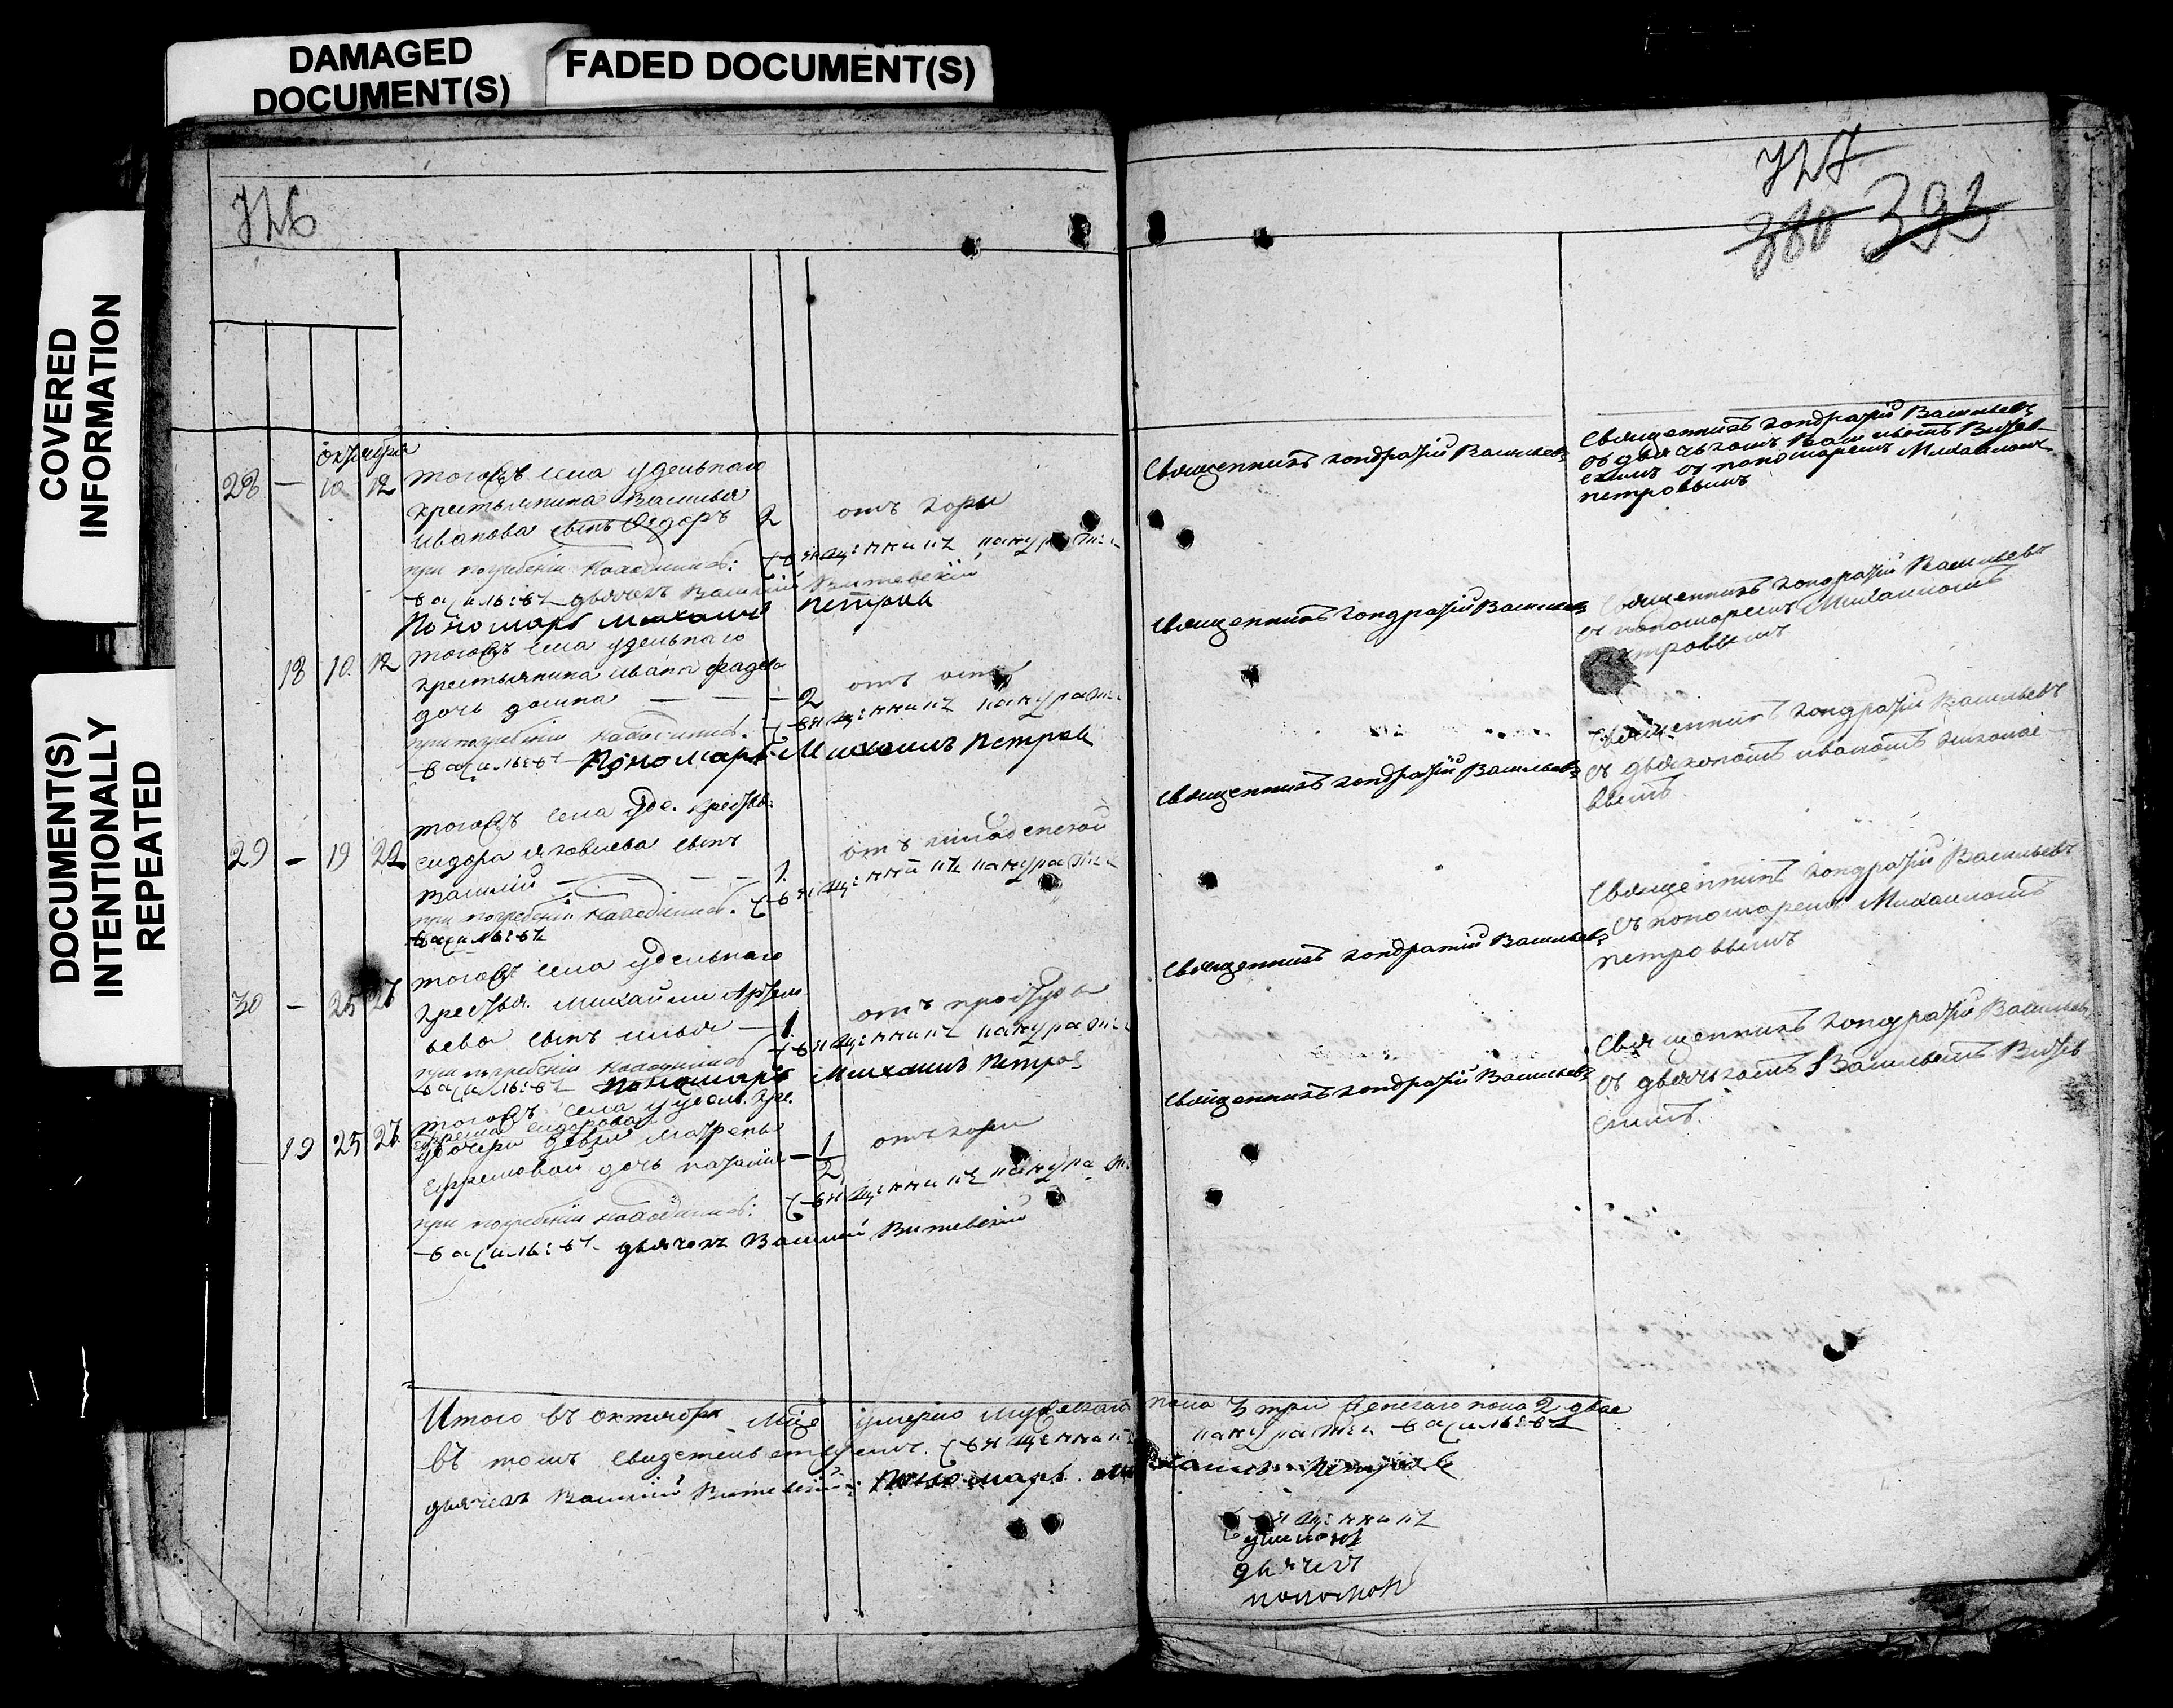 DAMAGED
DOCUMENT(S)
FADED DOCUMENT(S)
COVERED
INFORMATION
DOCUMENT(S)
INTENTIONALLY
REPEATED
726
727
380 393
октября
28 — 10 12 тогожъ села удельнаго
крестьянина Василья
Иванова сынъ Ѳедоръ 2 отъ кори
при погребеніи находились: священникъ Кандратий
Васильевъ дьячекъ Василий Витевскій
Пономарь Михаилъ Петровъ
Священникъ Кондратій Васильевъ
Священникъ Кондратій Васильевъ
съ дьячькомъ Васильемъ Витев
скимъ съ пономаремъ Михаиломъ
Петровымъ
18 10 12 тогожъ села удельнаго
крестьянина Ивана
дочь 2 отъ оспы
при погребеніи находились: священникъ Кандратий
Васильевъ Пономарь Михаилъ Петровъ
Священникъ Кондратій Васильевъ
Священникъ Кондратій Васильевъ
съ пономаремъ Михаиломъ
Петровымъ
29 — 19 22 тогожъ села уде. крестья.
Сидора Яковлева сынъ
Василий — — — 1. отъ младенской
при погребеніи находились: священникъ Кандратий
Васильевъ
Священникъ Кондратій Васильевъ
Священникъ Кондратій Васильевъ
съ дьякономъ Иваномъ Никола
евымъ
30 — 25 27 тогожъ села удельнаго
крестья. Михаила Артем
ьева сынъ Илья — 1. отъ простуды
при погребеніи находились священникъ Кандратий
Васильевъ Пономарь Михаилъ Петровъ
Священникъ Кондратий Васильевъ
Священникъ Кондратій Васильевъ
съ пономаремъ Михаиломъ
Петровымъ
19 25 27 тогожъ села удел. кре.
Ефрема Сидорова
дочери девки Матрены
Ефремовой дочь Наталия — 1/2 отъ кори
при погребеніи находились: священникъ Кандратий
Васильевъ. дьячекъ Василий Витевскій
Священникъ Кондратій Васильевъ
Священникъ Кондратій Васильевъ
съ дьячькомъ Васильемъ Витев
скимъ.
Итого въ октябре м-це умерло мужескаго пола 3 три женскаго пола 2 двое
въ томъ свидетельствуемъ. священникъ Кандратий Васильевъ
дьячекъ Василий Витевскій: Пономарь Михаилъ Петровъ
священникъ
дьячекъ
пономарь